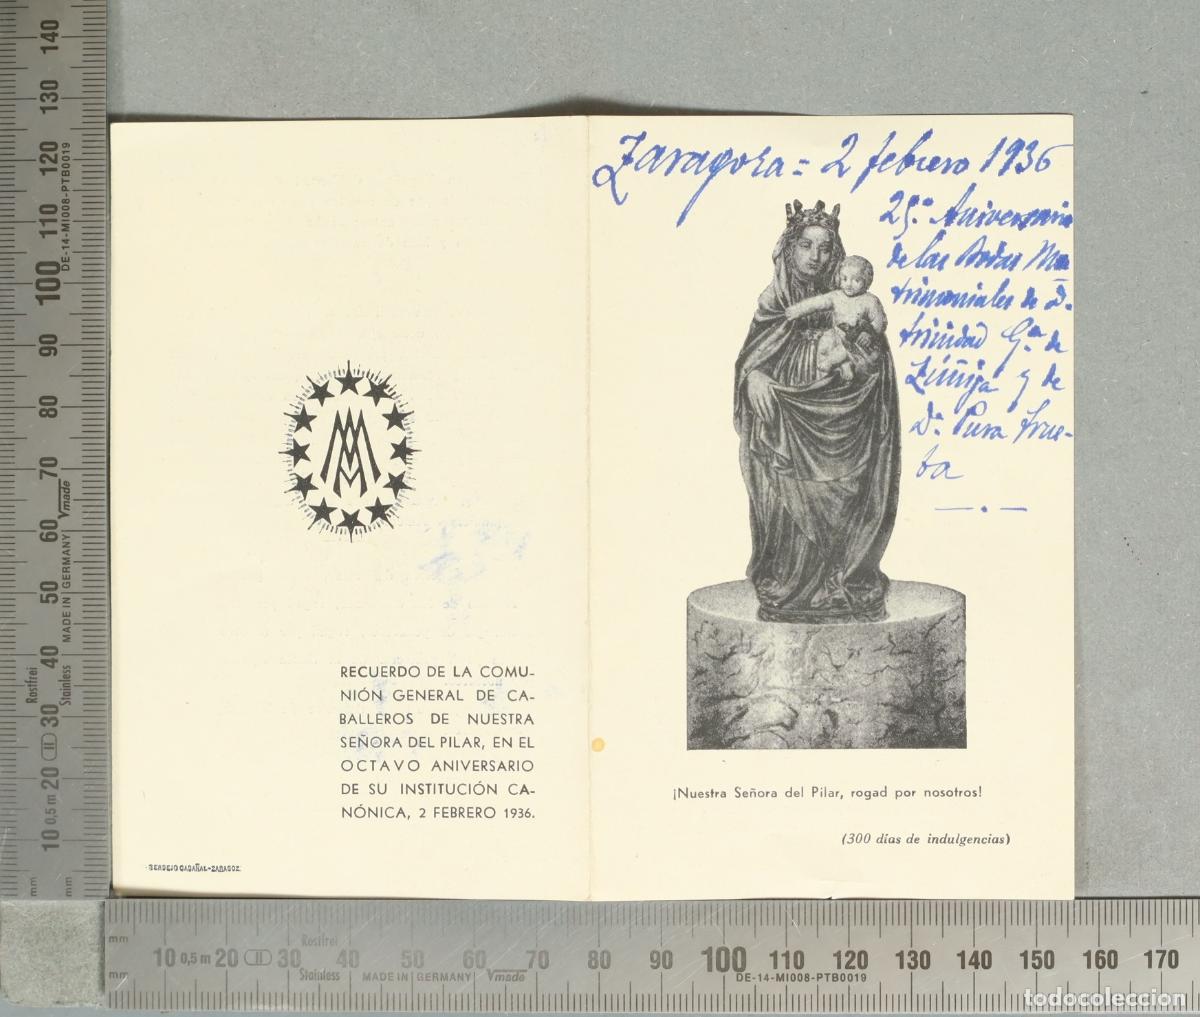 RECUERDO DE LA COMU-
NIÓN GENERAL DE CA-
BALLEROS DE NUESTRA
SEÑORA DEL PILAR, EN EL
OCTAVO ANIVERSARIO
DE SU INSTITUCIÓN CA-
NÓNICA, 2 FEBRERO 1936.
BERDEJO CASAÑAL-ZARAGOZA
Zaragoza = 2 febrero 1936
25.º Aniversario
de las Bodas Ma
trimoniales de D.
Trinidad G.ª de
Zúñiga y de
D.ª Pura True-
ba
¡Nuestra Señora del Pilar, rogad por nosotros!
(300 días de indulgencias)
140
130
120
110
100
90
80
70
60
50
40
30
20
10
0,5 m
II
mm
mm
DE-14-MI008-PTB0019
Vmade
MADE IN GERMANY
Rostfrei
Stainless
mm
mm
10 0,5 m 20 II 30 40 50 60 70 80 90 100 110 120 130 140 150 160 170
Rostfrei
Stainless MADE IN GERMANY Vmade DE-14-MI008-PTB0019
todocoleccion